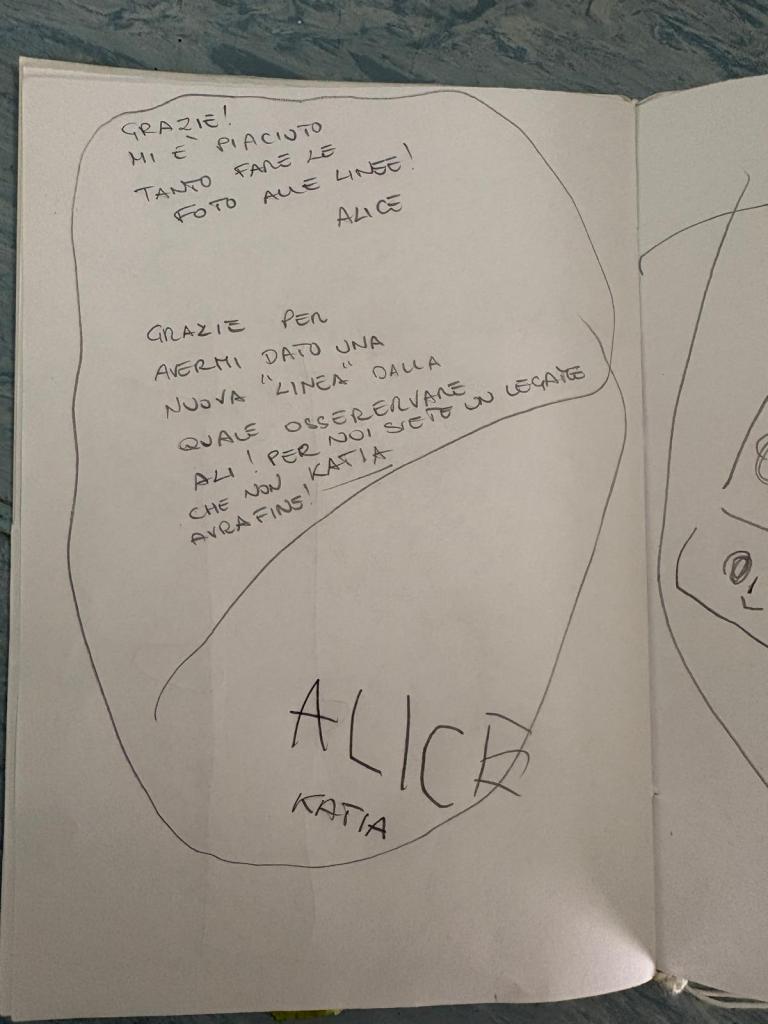 GRAZIE!
MI È PIACIUTO
TANTO FARE LE
FOTO ALLE LINEE!
ALICE
GRAZIE PER
AVERMI DATO UNA
NUOVA "LINEA" DALLA
QUALE OSSERERVARE
ALI! PER NOI SIETE UN LEGATE
CHE NON KATIA
AVRA FINE!
ALICE
KATIA